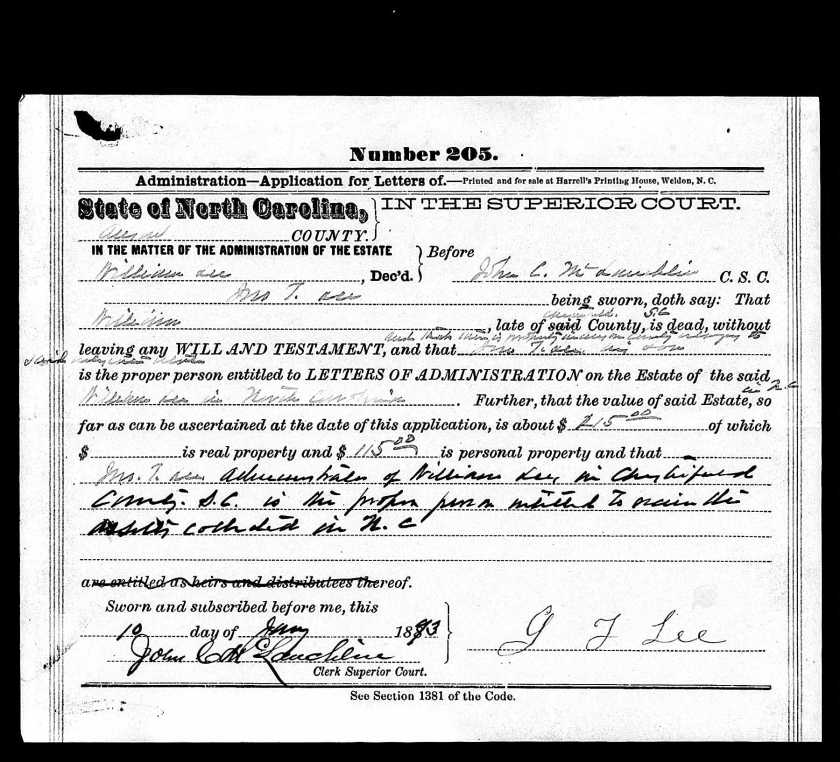 Number 205.
Administration—Application for Letters of.—Printed and for sale at Harrell's Printing House, Weldon, N. C.
State of North Carolina, } IN THE SUPERIOR COURT.
Anson COUNTY.
IN THE MATTER OF THE ADMINISTRATION OF THE ESTATE } Before
William Lee, Dec'd. John C. McLauchlin C. S. C.
Jno T. Lee being sworn, doth say: That
S.C
William, late of said County, is dead, without
leaving any WILL AND TESTAMENT, and that Jno T. Lee his son
is the proper person entitled to LETTERS OF ADMINISTRATION on the Estate of the said
in N.C
William Lee in North Carolina. Further, that the value of said Estate, so
far as can be ascertained at the date of this application, is about $ 00 of which
$ is real property and $ 115 00 is personal property and that
Jno. T. Lee administrator of William Lee, in Chesterfield
County. S.C. is the proper person entitled to receive the
assets collected in N. C
are entitled as heirs and distributees thereof.
Sworn and subscribed before me, this
10 day of Jany 1893
G T Lee
John C McLauchlin
Clerk Superior Court.
See Section 1381 of the Code.